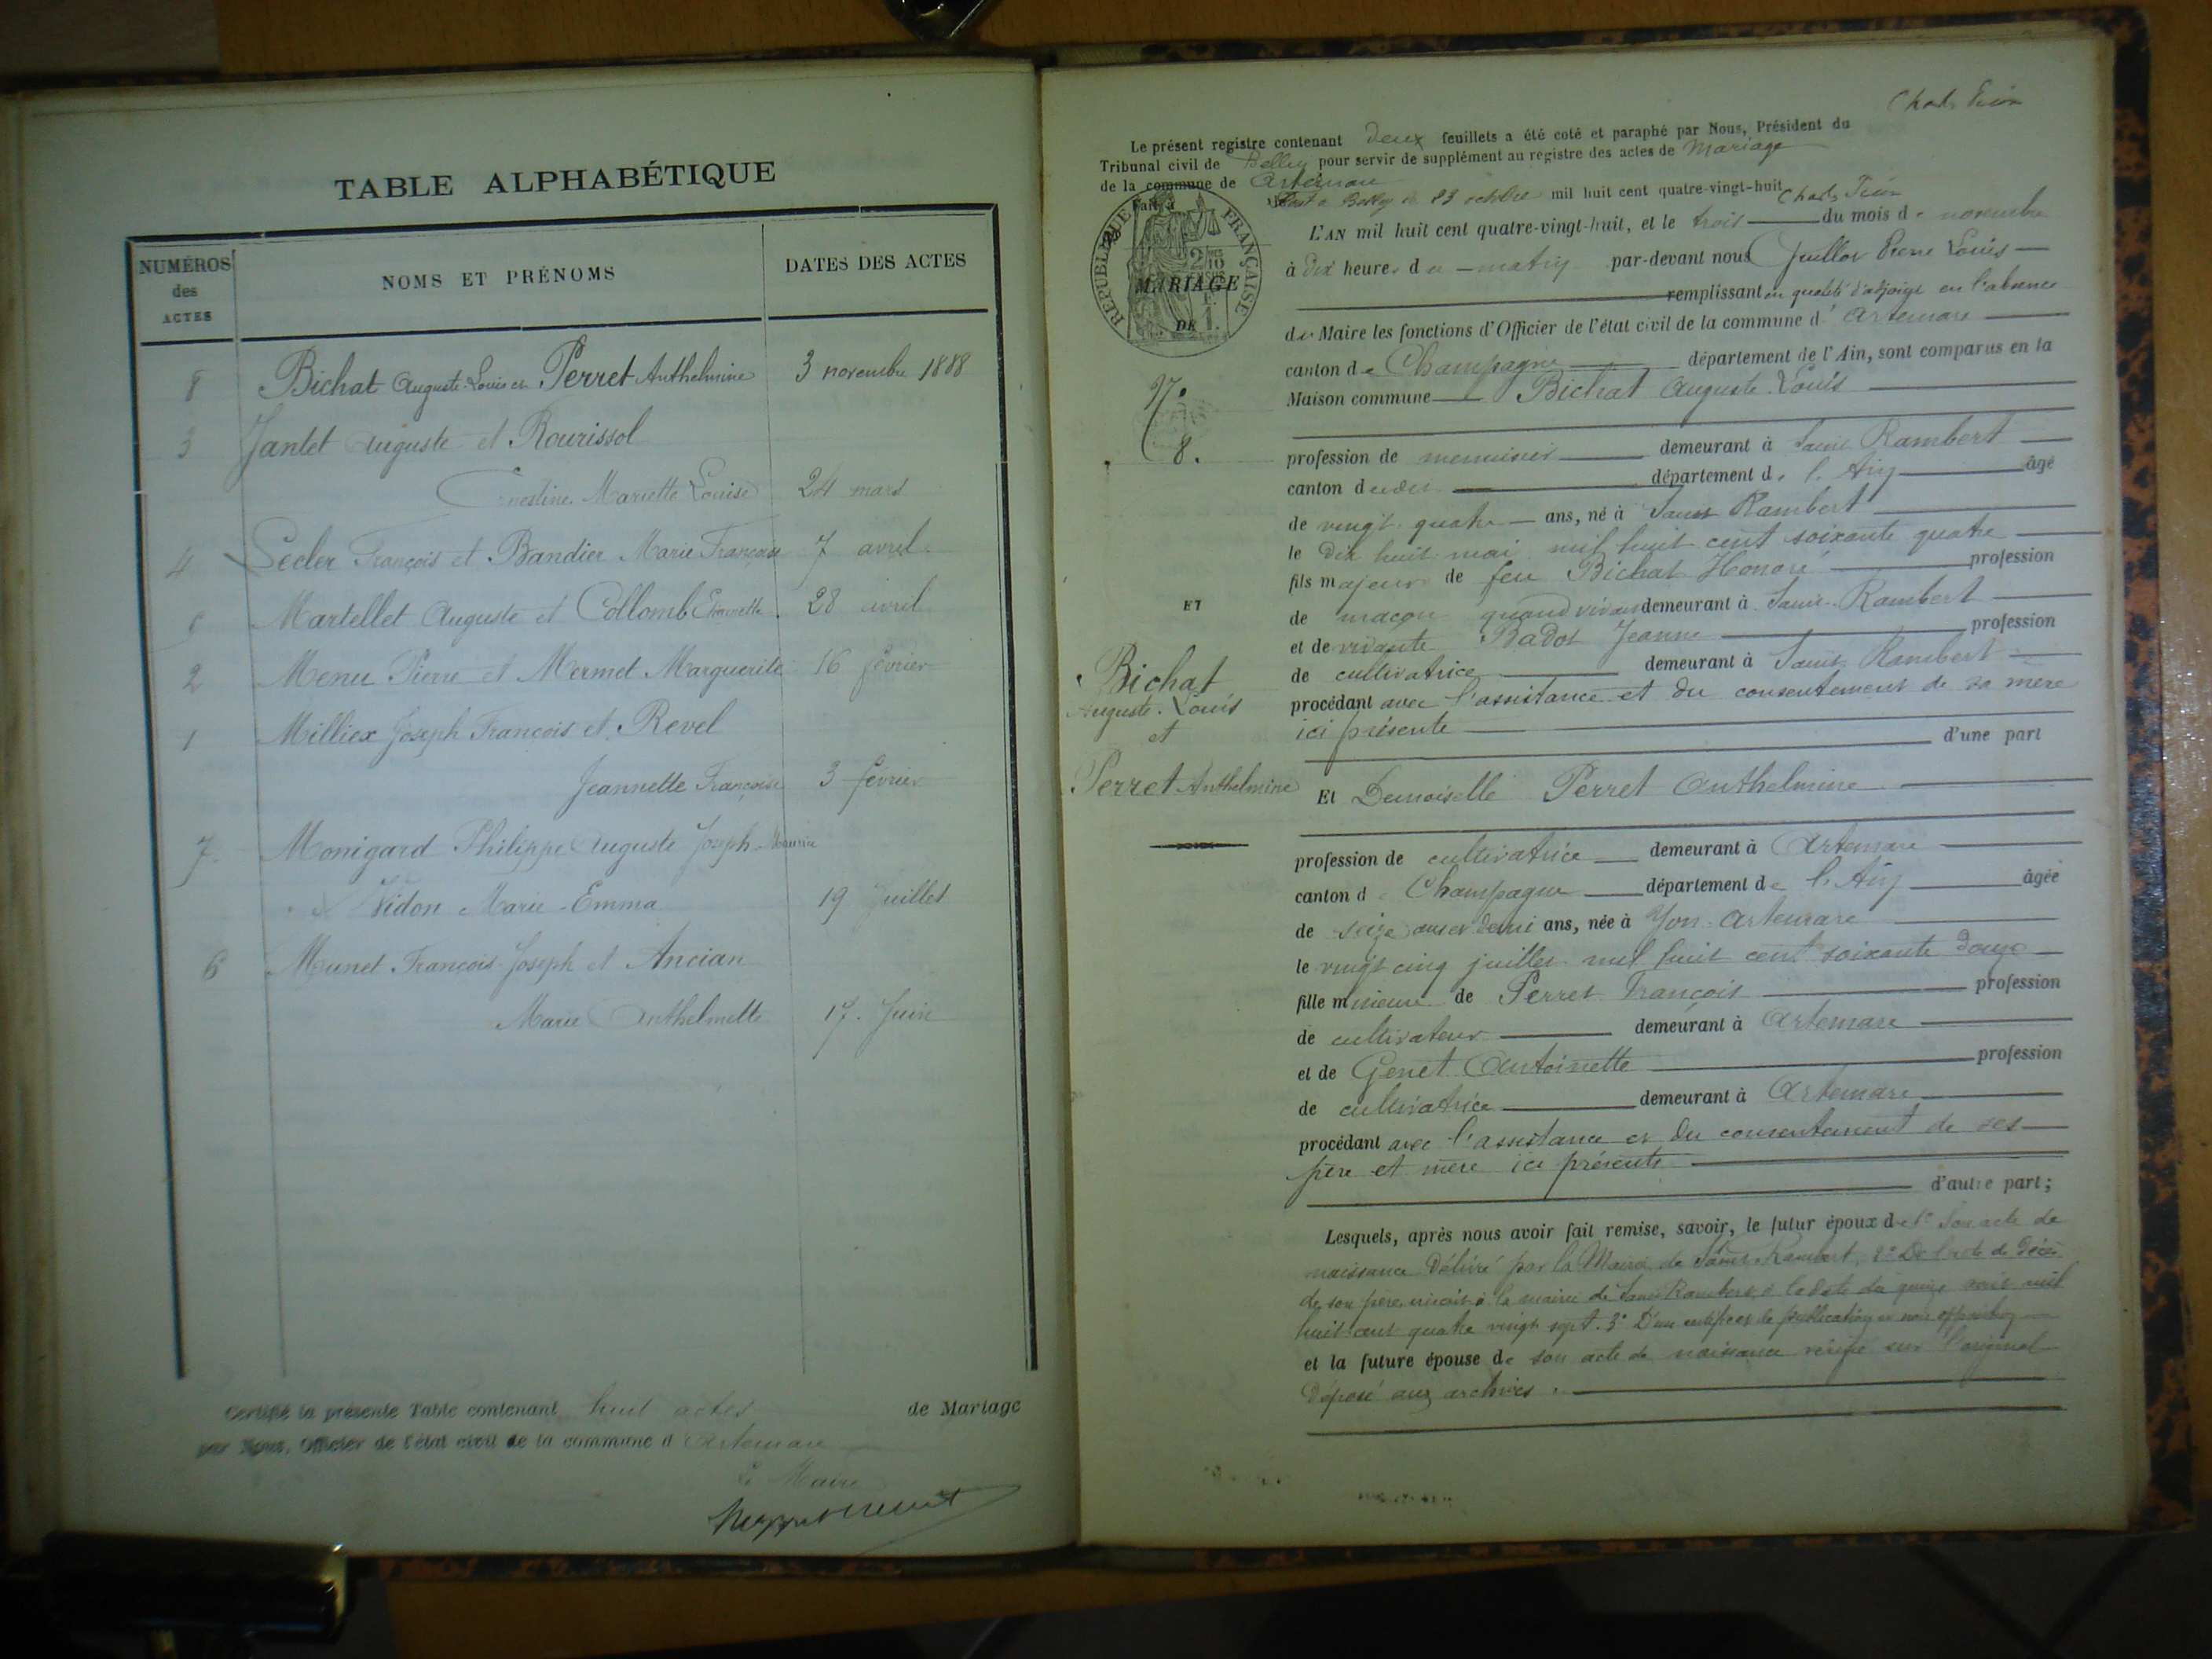 TABLE ALPHABÉTIQUE
NUMÉROS des ACTES
NOMS ET PRÉNOMS
DATES DES ACTES
8 Bichat Auguste Louis et Perret Anthelmine 3 novembre 1888
3 Jantet Auguste et Rourissol
Ernestine Mariette Louise 24 mars
4 Lecler François et Bandier Marie Françoise 7 avril
Martellet Auguste et Collomb 28 avril
2 Menu Pierre et Mermet Marguerite 16 février
1 Milliex Joseph François et Revel
Jeannette Françoise 3 février
7. Monigard Philippe Auguste Joseph
et Vidon Marie Emma 19 Juillet
6 Munet François Joseph et Ancian
Marie Anthelmette 17 Juin
Certifié la présente Table contenant huit actes de Mariage
par Nous, Officier de l'état civil de la commune d'Artemare
Le Maire
Le présent registre contenant deux feuillets a été coté et paraphé par Nous, Président du
Tribunal civil de Belley pour servir de supplément au registre des actes de Mariage
de la commune de Artemare
Fait à Belley le 23 octobre mil huit cent quatre-vingt-huit
RÉPUBLIQUE FRANÇAISE
MARIAGE
DE
L'AN mil huit cent quatre-vingt-huit, et le trois du mois de novembre
à dix heures du matin par-devant nous Juillor Pierre Louis
remplissant en qualité d'adjoint en l'absence
du Maire les fonctions d'Officier de l'état civil de la commune d'Artemare
canton de Champagne département de l'Ain, sont comparus en la
Maison commune Bichat Auguste Louis
N.º
8.
profession de menuisier demeurant à Saint Rambert
canton dudit département de l'Ain âgé
de vingt quatre ans, né à Saint Rambert
le dix huit mai mil huit cent soixante quatre
fils majeur de feu Bichat Honoré profession
de maçon quand vivant demeurant à Saint-Rambert
ET
et de vivante Badot Jeanne profession
de cultivatrice demeurant à Saint Rambert
Bichat
Auguste Louis
et
Perret Anthelmine
procédant avec l'assistance et du consentement de sa mère
ici présente
d'une part
Et Demoiselle Perret Anthelmine
profession de cultivatrice demeurant à Artemare
canton de Champagne département de l'Ain âgée
de seize ans et demi ans, née à Yon-Artemare
le vingt cinq juillet mil huit cent soixante douze
fille mineure de Perret François profession
de cultivateur demeurant à Artemare
et de Genet Antoinette profession
de cultivatrice demeurant à Artemare
procédant avec l'assistance et du consentement de ses
père et mère ici présents
d'autre part;
Lesquels, après nous avoir fait remise, savoir, le futur époux de 1º Son acte de
naissance délivré par la Mairie de Saint Rambert, 2º De l'acte de décès
de son père inscrit à la mairie de Saint Rambert à la date du quinze avril mil
huit cent quatre vingt sept. 3º D'un certificat de publication et non opposition
et la future épouse de son acte de naissance vérifié sur l'original
déposé aux archives.